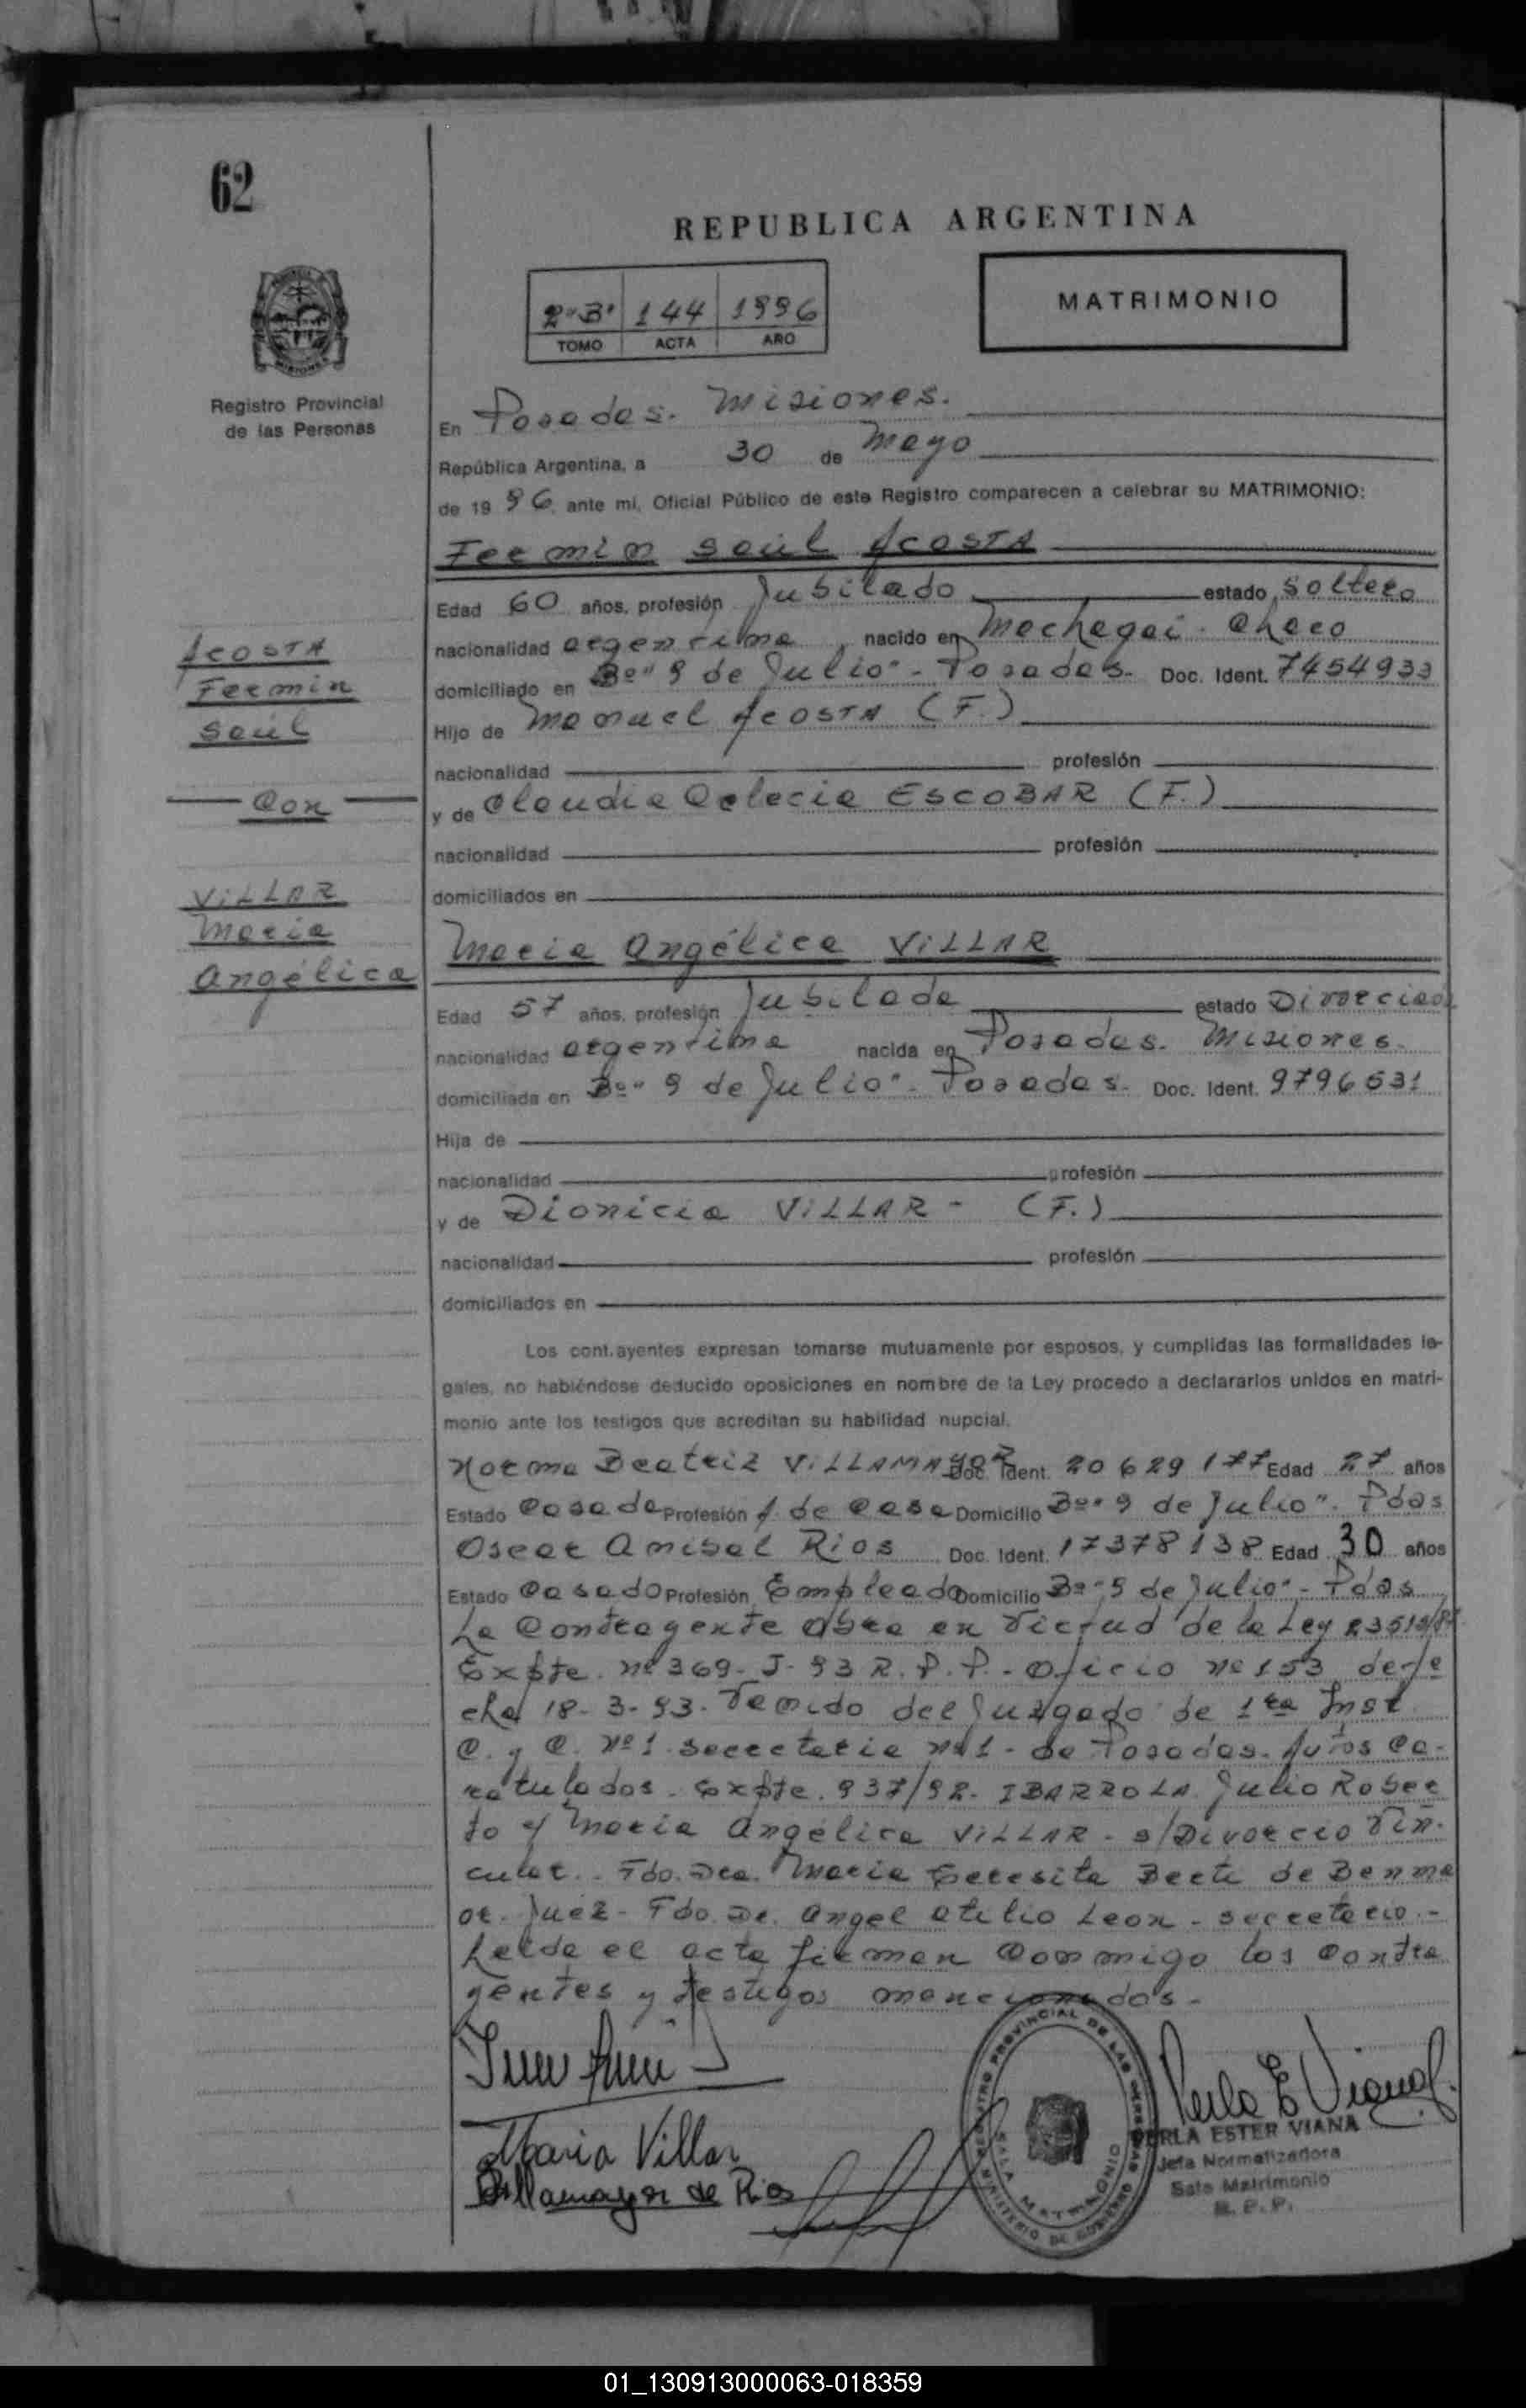 62
REPUBLICA ARGENTINA
2º Bº 144 1996
TOMO ACTA AÑO
MATRIMONIO
Registro Provincial
de las Personas
En Posadas. Misiones.
República Argentina, a 30 de Mayo
de 19 96, ante mi, Oficial Público de este Registro comparecen a celebrar su MATRIMONIO:
Fermin Saúl ACOSTA
Edad 60 años, profesión Jubilado estado Soltero
nacionalidad argentina, nacido en Machagai - Chaco
domiciliado en Bº "9 de Julio" - Posadas. Doc. Ident. 7454933
Hijo de Manuel ACOSTA (F.)
nacionalidad profesión
y de Claudia Celecia ESCOBAR (F.)
nacionalidad profesión
domiciliados en
ACOSTA
Fermin
Saúl
Con
VILLAR
Maria
Angélica
Maria Angélica VILLAR
Edad 57 años, profesión Jubilada estado Divorciada
nacionalidad argentina nacida en Posadas. Misiones.
domiciliada en Bº "9 de Julio" - Posadas. Doc. Ident. 9796531
Hija de
nacionalidad profesión
y de Dionicia VILLAR - (F.)
nacionalidad profesión
domiciliados en
Los contrayentes expresan tomarse mutuamente por esposos, y cumplidas las formalidades le-
gales, no habiéndose deducido oposiciones en nombre de la Ley procedo a declararlos unidos en matri-
monio ante los testigos que acreditan su habilidad nupcial.
Norma Beatriz VILLAMAYOR Doc. Ident. 20629177 Edad 27 años
Estado Casada Profesión A. de Casa Domicilio Bº "9 de Julio". Pdas
Oscar Anibal Rios Doc. Ident. 17378138 Edad 30 años
Estado Casado Profesión Empleado Domicilio Bº "9 de Julio" - Pdas
La Contrayente obra en Virtud de la Ley 23515/87
Expte. nº 369-J-93 R.P.P. - Oficio nº 153 de fe
cha 18-3-93. Venido del Juzgado de 1ra Inst
C. y C. Nº 1 Secretaria nº 1 - de Posadas. Autos Ca-
ratulados. Expte. 937/92. IBARROLA Julio Rober
to y Maria Angélica VILLAR - s/Divorcio Vin-
cular.. Fdo. Dra. Maria Teresita de Benma
or. Juez - Fdo. Dr. Angel Atilio Leon - Secretario.-
Leida el acta firman Conmigo los Contra
yentes y testigos mencionados -
Maria Villar
Villamayor de Rios
REGISTRO PROVINCIAL DE LAS PERSONAS
SALA MATRIMONIO
MINISTERIO DE GOBIERNO
Perla E Viana
PERLA ESTER VIANA
Jefa Normatizadora
Sala Matrimonio
R. P. P.
01_130913000063-018359